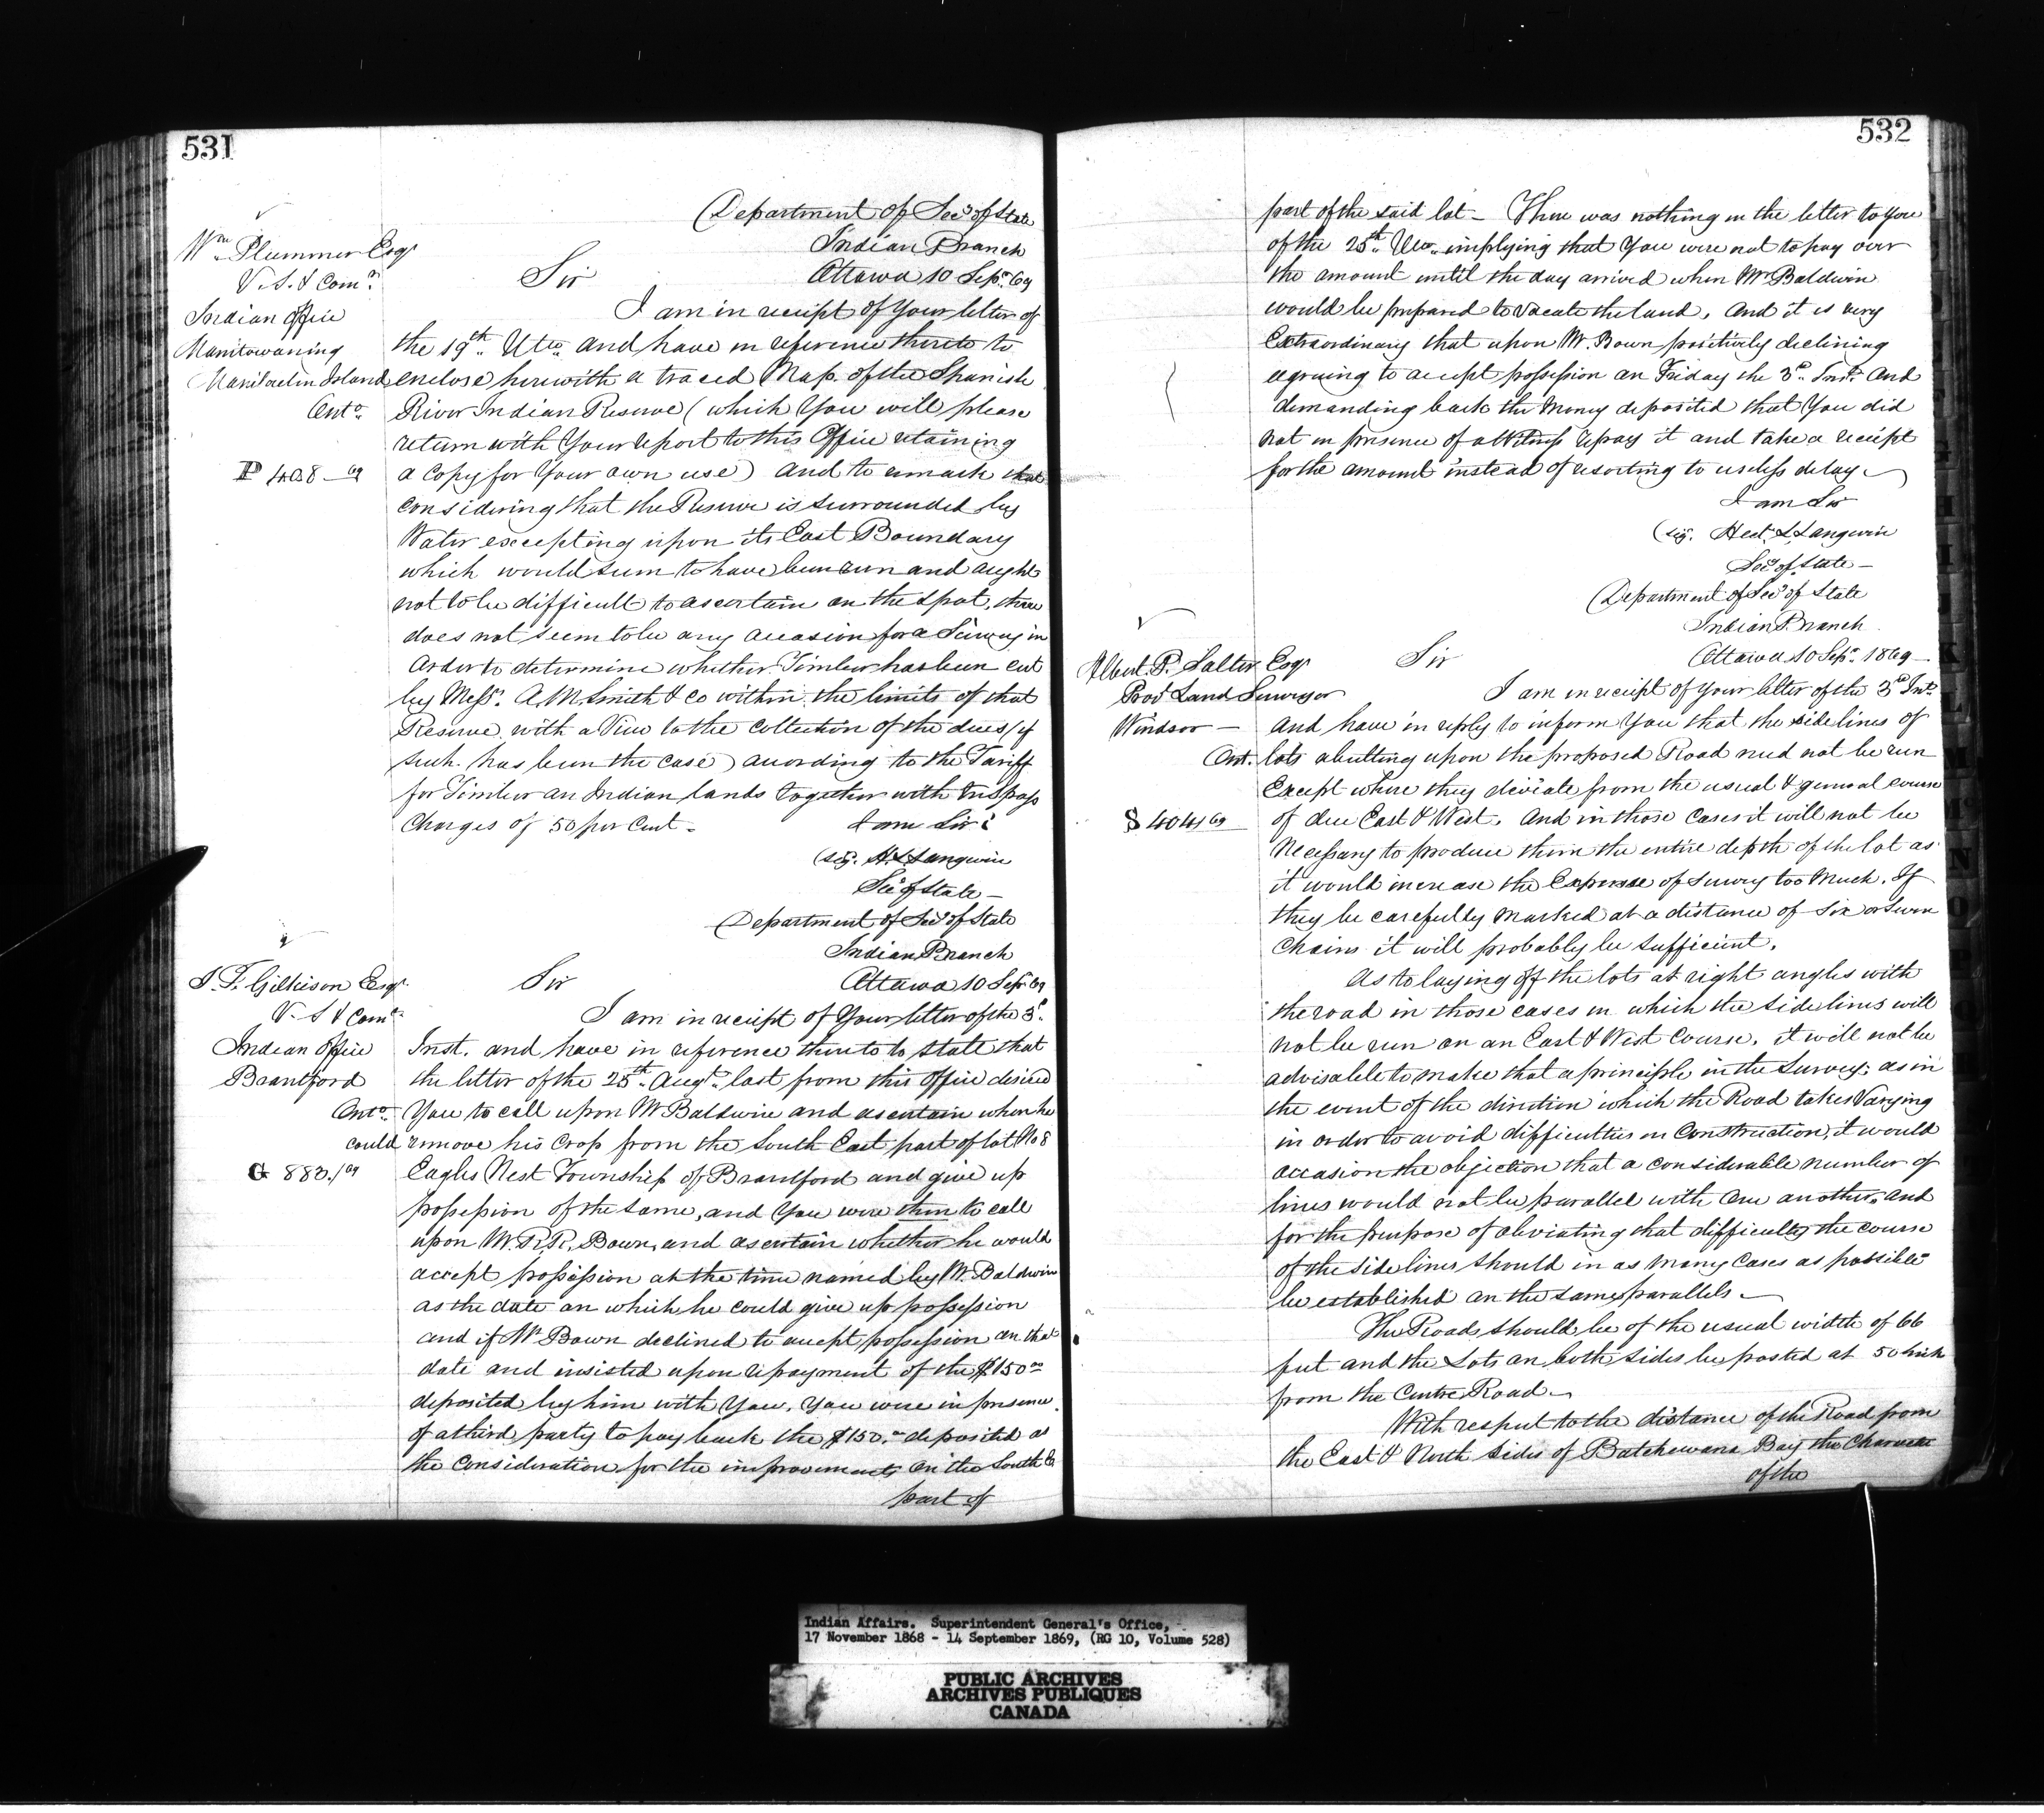 531
Department of Secy of State
Indian Branch
Ottawa 10 Sepr. 69
Wm Plummer Esqr
V. S. & Comr
Indian Office
Manitowaning
Manitoulin Island
Onto.
P 408 — 69
Sir
I am in receipt of your letter of
the 19th. Ulto. and have in reference thereto to
enclose herewith a traced Map of the Spanish
River Indian Reserve (which You will please
return with Your report to this Office retaining
a Copy for Your own use) and to remark that
considering that the Reserve is surrounded by
Water excepting upon its East Boundary
which would seem to have been run and ought
not to be difficult to ascertain on the spot, there
does not seem to be any occasion for a Survey in
Order to determine whether Timber has been cut
by Messrs. A. M. Smith & Co within the limits of that
Reserve with a View to the Collection of the dues (if
such has been the case) according to the Tariff
for Timber on Indian lands together with trespass
Charges of 50 per Cent.
I am Sir
(sig. H. L. Langevin
Secy of State —
Department of Secy of State
Indian Branch
Ottawa 10 Sepr 69
J. T. Gilkison Esqr.
V. S & Comr.
Indian Office
Brantford
Onto.
G 883./69
Sir
I am in receipt of Your letter of the 3d.
Inst. and have in reference thereto to state that
the letter of the 25th. Augt. last from this Office desired
You to call upon Mr Baldwin and ascertain when he
could remove his Crop from the South East part of lot No 8
Eagles Nest Township of Brantford and give up
possession of the same, and You were then to call
upon Mr. R. R. Bown, and ascertain whether he would
accept possession at the time named by Mr. Baldwin
as the date on which he could give up possession
and if Mr Bown declined to accept possession on that
date and insisted upon repayment of the $150.00
deposited by him with You, You were in presence
of a third party to pay back the $150.00 deposited as
the Consideration for the improvements on the South Et
part of
532
part of the said lot — There was nothing in the letter to you
of the 25th. Ulto. implying that You were not to pay over
the amount until the day arrived when Mr Baldwin
would be prepared to vacate the land, And it is very
Extraordinary that upon Mr. Bown positively declining
agreeing to accept possession on Friday the 3d. Inst. And
demanding back the Money deposited that You did
not in presence of a Witness repay it and take a receipt
for the amount instead of resorting to useless delay —
I am Sir
(sig. Hect. L. Langevin
Secy of State —
Department of Secy of State
Indian Branch
Ottawa 10 Sepr. 1869 —
Albert P. Salter Esqr
Provl Land Surveyor
Windsor —
Ont.
S 404 69
Sir
I am in receipt of Your letter of the 3d Inst.
And have in reply to inform You that the side lines of
lots abutting upon the proposed Road need not be run
Except where they deviate from the usual & general course
of due East & West. And in those Cases it will not be
Necessary to produce them the entire depth of the lot as
it would increase the Expense of survey too Much. If
they be carefully Marked at a distance of six or seven
Chains it will probably be sufficient.
As to laying off the lots at right angles with
the road in those cases in which the side lines will
not be run on an East & West Course, it will not be
advisable to make that a principle in the Survey: as in
the event of the direction which the Road takes Varying
in order to avoid difficulties in Construction, it would
occasion the objection that a considerable number of
lines would not be parallel with One another, and
for the purpose of obviating that difficulty the course
of the side lines should in as Many Cases as possible
be established on the same parallels —
The Roads should be of the usual width of 66
feet and the Lots on both sides be posted at 50 links
from the Centre Road —
With respect to the distance of the Road from
the East & North Sides of Batchewana Bay the Character
of the
K
L
M
Mc
N
O
Indian Affairs. Superintendent General's Office,
17 November 1868 - 14 September 1869, (RG 10, Volume 528)
PUBLIC ARCHIVES
ARCHIVES PUBLIQUES
CANADA